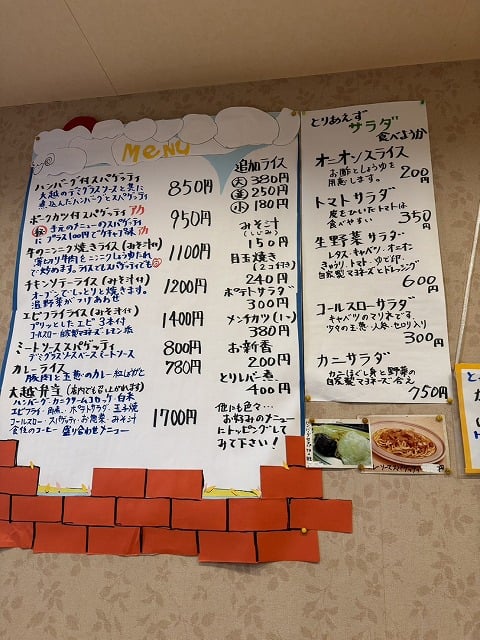 MENU
ハンバーグ付スパゲッティ 850円
大越のデミグラスソースと共に
煮込んだハンバーグとスパゲッティ
ポークカツ付スパゲッティ 950円
にプラス100円でケチャプ味
牛のニンニク焼きライス(みそ汁付) 1100円
厚切り牛肉とニンニクしょうゆたれ
で炒めます。ライスでもスパゲッティでも
チキンソテーライス(みそ汁付) 1200円
オーブンでしっとりと焼きます。
温野菜がつけあわせ
エビフライライス(みそ汁付) 1400円
プリッとしたエビ3本付
コールスロー 自家製マヨネーズ・レモン添
ミートソーススパゲッティ 800円
デミグラスソースベースミートソース
カレーライス 780円
豚肉と玉葱のカレー 紅しょうが
大越弁当(店内でも召し上がれます) 1700円
ハンバーグ・カニクリームコロッケ・白米
エビフライ・角煮・ポテトサラダ・玉子焼
コールスロー・スパゲッティ・お惣菜・みそ汁
食後のコーヒー 盛り合わせメニュー
追加ライス
大 330円
中 250円
小 180円
みそ汁
150円
目玉焼き
(2コ付き)
240円
ポテトサラダ
300円
メンチカツ(1ヶ)
380円
お新香
200円
とりレバー煮
400円
他にも色々…
お好みのメニュー
にトッピングして
みて下さい!
とりあえず
サラダ
食べようか
オニオンスライス
お酢としょうゆを
用意します。
200円
トマトサラダ
皮をむいたトマトは
食べやすい
350円
生野菜サラダ
レタス、キャベツ、オニオン
きゅうり、トマト、ゆで卵、
自家製マヨネーズとドレッシング
600円
コールスローサラダ
キャベツのマリネです。
少々の玉葱・人参、セロリ入り
300円
カニサラダ
カニほぐし身と野菜の
自家製マヨネーズ合え
750円